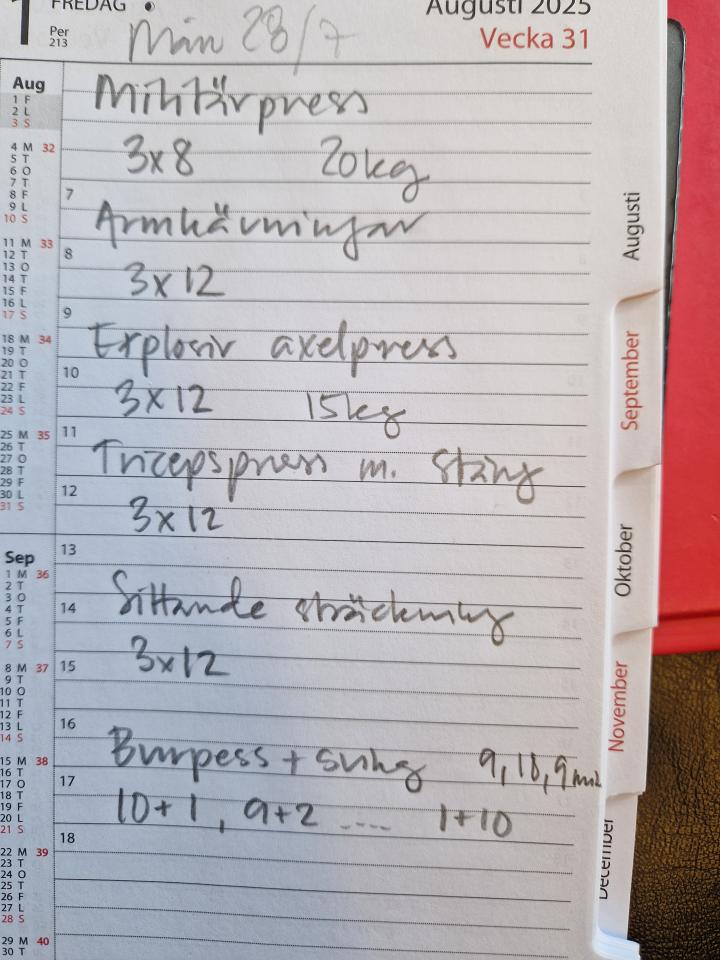 1 FREDAG Augusti 2025
Per 213 Mån 28/7 Vecka 31
Aug
Militärpress
1 F
2 L
3 S
3x8 20kg
4 M 32
5 T
6 O
7 T
8 F
9 L
10 S
7
Armhävningar
11 M 33
12 T
13 O
14 T
15 F
16 L
17 S
8
3x12
9
18 M 34
19 T
20 O
21 T
22 F
23 L
24 S
Explosiv axelpress
10
3x12 15kg
11
25 M 35
26 T
27 O
28 T
29 F
30 L
31 S
Tricepspress m. stång
12
3x12
13
Sep
1 M 36
2 T
3 O
4 T
5 F
6 L
7 S
14
Sittande sträckning
3x12
15
8 M 37
9 T
10 O
11 T
12 F
13 L
14 S
16
Burpess + sving
15 M 38
16 T
17 O
18 T
19 F
20 L
21 S
17
10+1, 9+2 .... 1+10
18
22 M 39
23 T
24 O
25 T
26 F
27 L
28 S
29 M 40
30 T
Augusti
September
Oktober
November
December